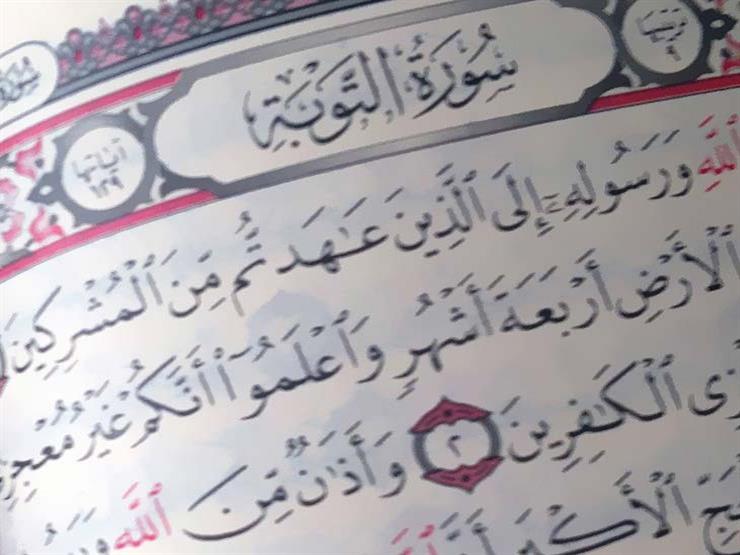 سُورَةُ التَّوْبَةِ
ترتيبها ٩
آياتها ١٢٩
ٱللَّهِ وَرَسُولِهِۦٓ إِلَى ٱلَّذِينَ عَـٰهَدتُّم مِّنَ ٱلْمُشْرِكِينَ
ٱلْأَرْضِ أَرْبَعَةَ أَشْهُرٍ وَٱعْلَمُوٓا۟ أَنَّكُمْ غَيْرُ مُعْجِزِى
ٱلْكَـٰفِرِينَ ٢ وَأَذَٰنٌ مِّنَ ٱللَّهِ
ٱلْأَكْبَرِ